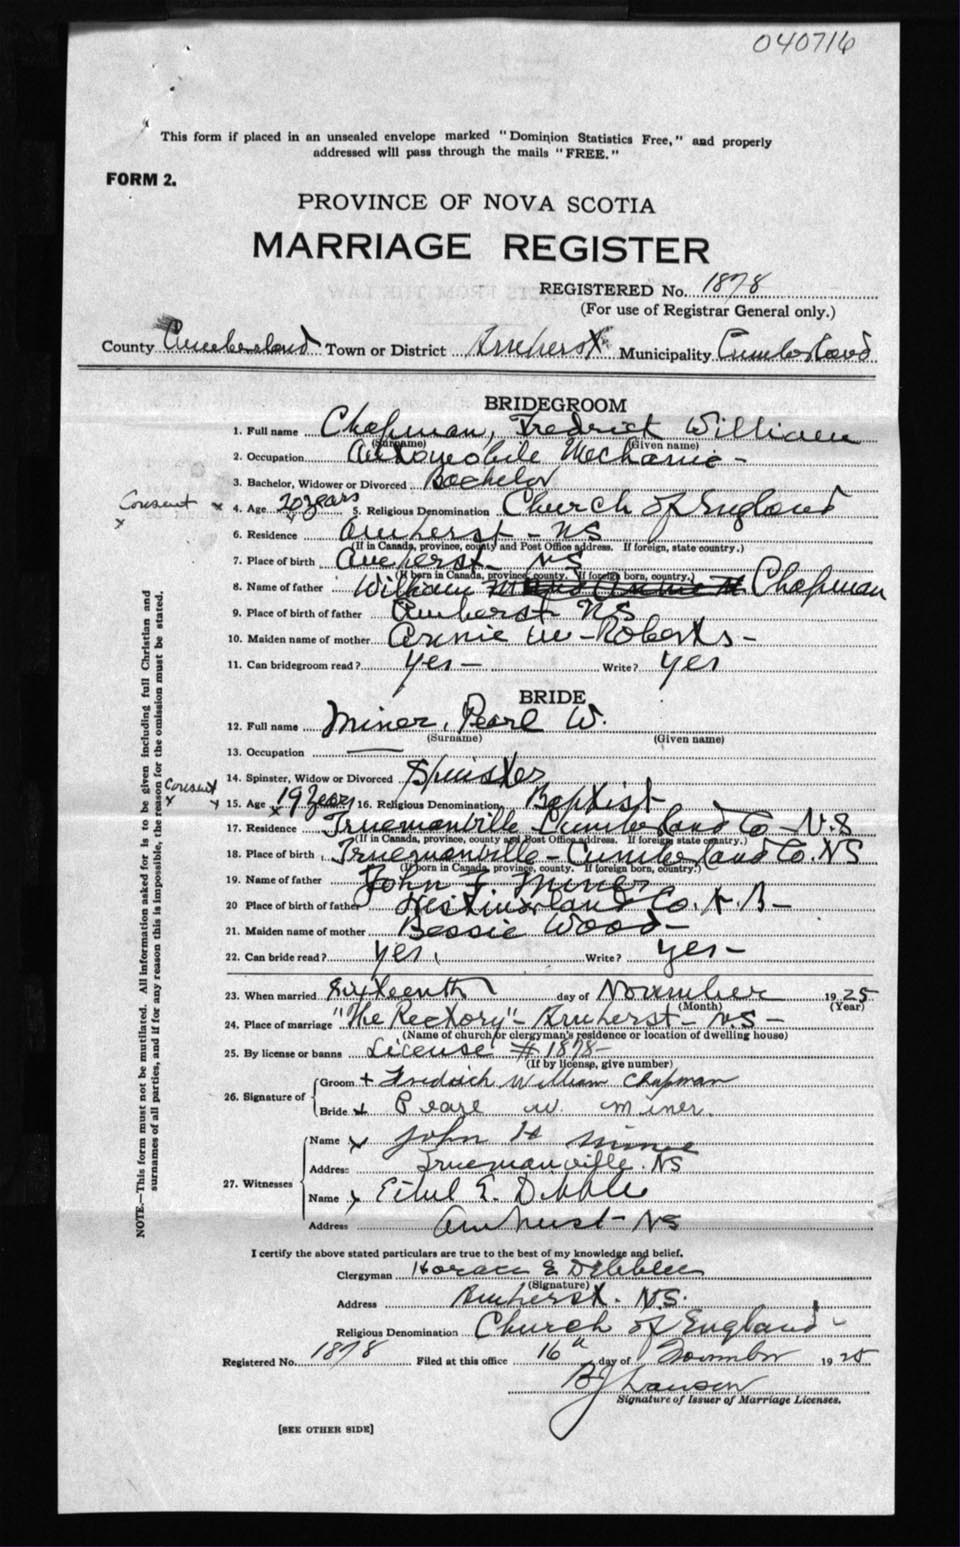 040716
This form if placed in an unsealed envelope marked "Dominion Statistics Free," and properly
addressed will pass through the mails "FREE."
FORM 2.
PROVINCE OF NOVA SCOTIA
MARRIAGE REGISTER
REGISTERED No. 1878
(For use of Registrar General only.)
County Cumberland Town or District Amherst Municipality Cumberland
BRIDEGROOM
1. Full name Chapman, Fredrick William
(Surname) (Given name)
2. Occupation Automobile Mechanic -
3. Bachelor, Widower or Divorced Bachelor
Consent x x 4. Age 20 years 5. Religious Denomination Church of England
6. Residence Amherst - NS
(If in Canada, province, county and Post Office address. If foreign, state country.)
7. Place of birth Amherst - NS
(If born in Canada, province, county. If foreign born, country.)
8. Name of father William Chapman
9. Place of birth of father Amherst NS
10. Maiden name of mother Annie M - Roberts -
11. Can bridegroom read? Yes - Write? Yes
BRIDE
12. Full name Miner, Pearl W.
(Surname) (Given name)
13. Occupation —
14. Spinster, Widow or Divorced Spinster
Consent x x 15. Age 19 Years 16. Religious Denomination Baptist
17. Residence Truemanville Cumberland Co - N.S
(If in Canada, province, county and Post Office address. If foreign, state country.)
18. Place of birth Truemanville - Cumberland Co. NS
(If born in Canada, province, county. If foreign born, country.)
19. Name of father John F. Miner
20 Place of birth of father Westmorland Co. N. B -
21. Maiden name of mother Bessie Wood -
22. Can bride read? Yes, Write? Yes -
23. When married Sixteenth day of November 1925
(Month) (Year)
24. Place of marriage "The Rectory" - Amherst - N.S -
(Name of church or clergyman's residence or location of dwelling house)
25. By license or banns License # 1878 -
(If by license, give number)
26. Signature of Groom + Fredrich William Chapman
Bride x Pearl W. Miner.
27. Witnesses Name x John H
Address Truemanville. NS
Name x Ethel E. Dibblee
Address Amherst - NS
I certify the above stated particulars are true to the best of my knowledge and belief.
Clergyman Horace E Dibblee
(Signature)
Address Amherst. N.S.
Religious Denomination Church of England -
Registered No. 1878 Filed at this office 16th day of November 1925
Signature of Issuer of Marriage Licenses.
[SEE OTHER SIDE]
NOTE.—This form must not be mutilated. All information asked for is to be given including full Christian and
surnames of all parties, and if for any reason this is impossible, the reason for the omission must be stated.